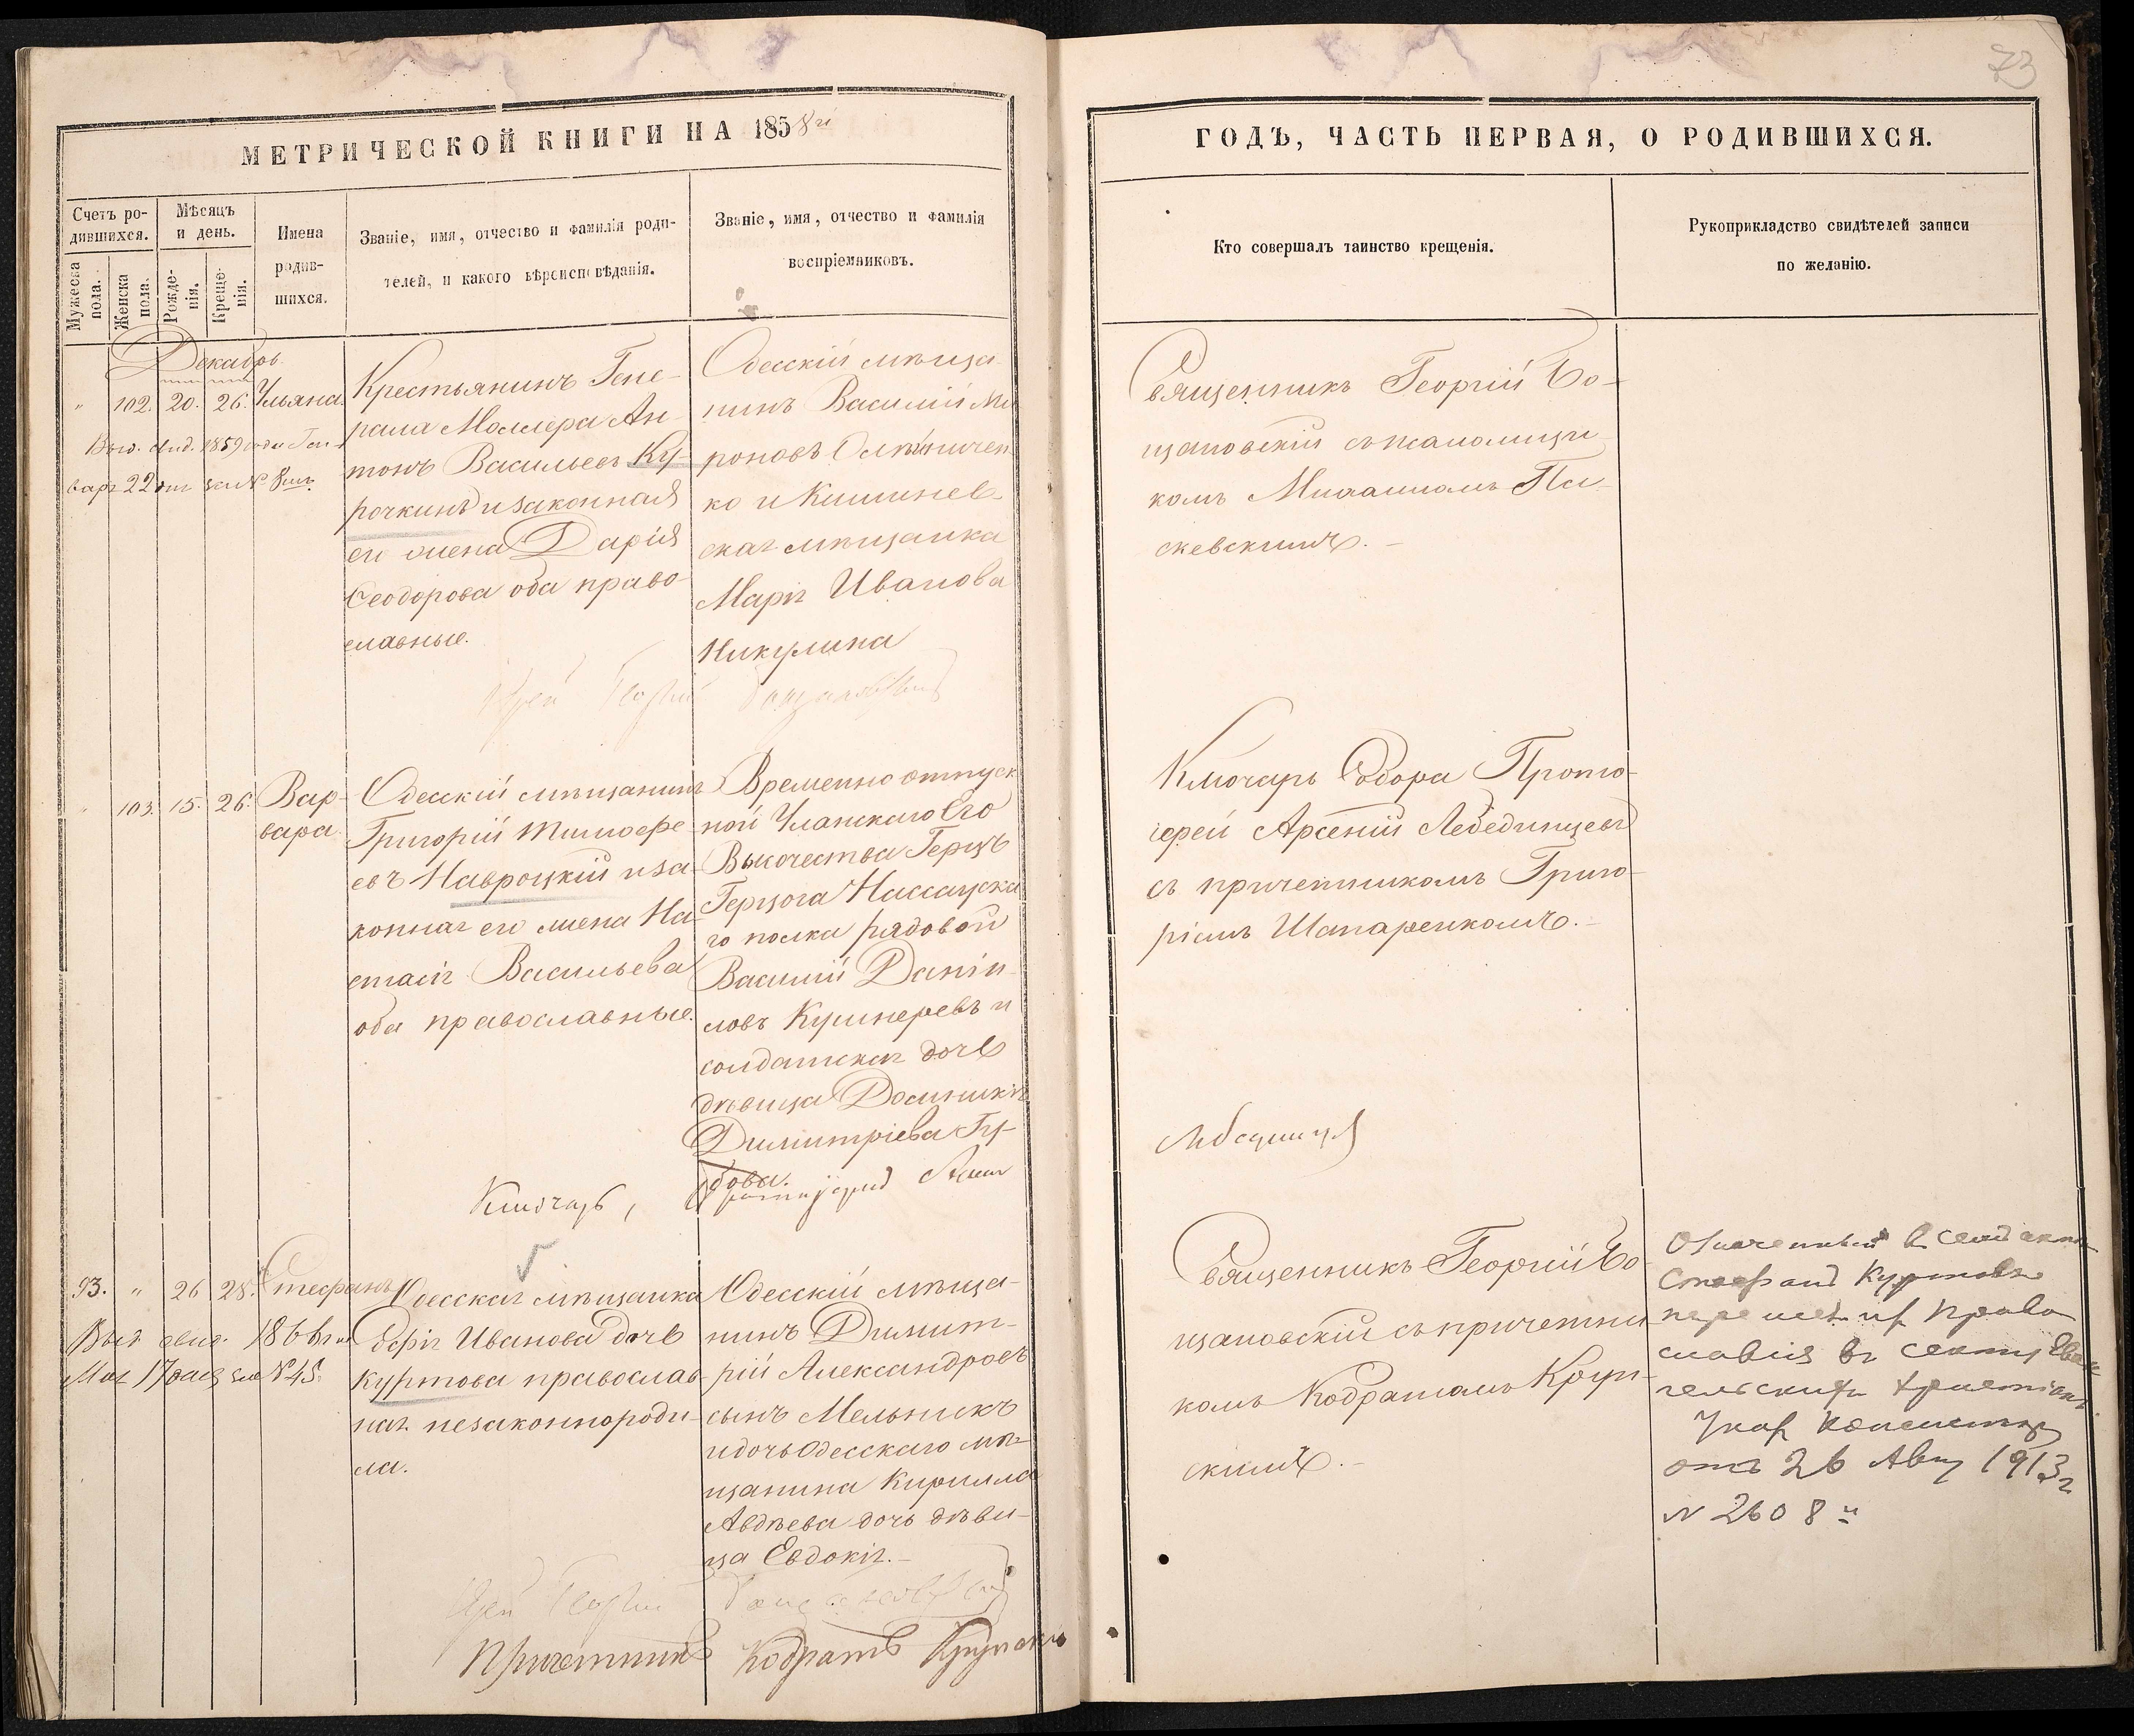 73
МЕТРИЧЕСКОЙ КНИГИ НА 1858й
ГОДЪ, ЧАСТЬ ПЕРВАЯ, О РОДИВШИХСЯ.
Счетъ ро-
дившихся.
Мужеска
пола.
Женска
пола.
Мѣсяцъ
и день.
Рожде-
нія.
Креще-
нія.
Имена
родив-
шихся.
Званіе, имя, отчество и фамилія роди-
телей, и какого вѣроисповѣданія.
Званіе, имя, отчество и фамилія
воспріемниковъ.
Кто совершалъ таинство крещенія.
Рукоприкладство свидѣтелей записи
по желанію.
Декабрь.
" 102. 20. 26. Ульяна.
Выд. свид. 1859 года Ген-
варя 22 дня за № 8мъ
Крестьянинъ Гене-
рала Моллера Ан-
тонъ Васильевъ Ку-
рочкинъ и законная
его жена Дарія
Ѳеодорова оба право-
славные.
Одесскій мѣща-
нинъ Василій Ми
роновъ Олѣйничен
ко и Кишинев-
ская мѣщанка
Марія Иванова
Никулина
Іерей Георгій
Священникъ Георгій Бо-
щановскій съ
комъ Па-
скевскимъ.-
" 103. 15. 26. Вар-
вара.
Одесскій мѣщанинъ
Григорій Тимофе-
евъ Навроцкій и за-
конная его жена На-
стасія Васильева
оба православные.
Временно отпуск
ной Уланскаго Его
Высочества Герцъ
Герцога Нассауска
го полка рядовой
Василій Даніи-
ловъ Кушнеревъ и
солдатская дочь
дѣвица Домникія
Димитріева Гу-
бова.
Ключарь,
Ключарь Собора Прото-
іерей Арсеній Лебединцевъ
съ причетникомъ Григо-
ріемъ Шапаренкомъ.-
93. " 26 28. Стефанъ
Выд свид. 1866 г.
Мая 17 дня за № 45.
Одесская мѣщанка
Софія Иванова дочь
Куртова православ-
ная незаконнороди-
ла.
Одесскій мѣща-
нинъ Димит-
рій Александровъ
сынъ Мельникъ
и дочь Одесскаго мѣ-
щанина Кирилла
Авдѣева дочь дѣви-
ца Евдокія.-
Іерей Георгій
Причетникъ Кодратъ Крупскій
Священникъ Георгій Бо-
щановскій съ причетни-
комъ Кодратомъ Круп-
скимъ.-
Означенный въ семъ актѣ
Стефанъ Куртовъ
перешелъ изъ Право
славія въ секту Еван
гельскихъ христіанъ.
Указ Консисторіи
отъ 26 Авг 1913 г
№ 2608й